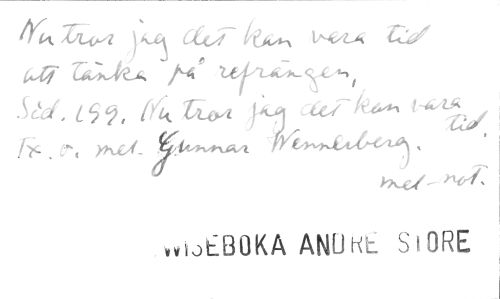 Nu tror jag det kan vara tid
att tänka på refrängen,
Sid. 199. Nu tror jag det kan vara
tid.
Tx. o. mel. Gunnar Wennerberg.
mel-not.
WISEBOKA ANDRE STORE